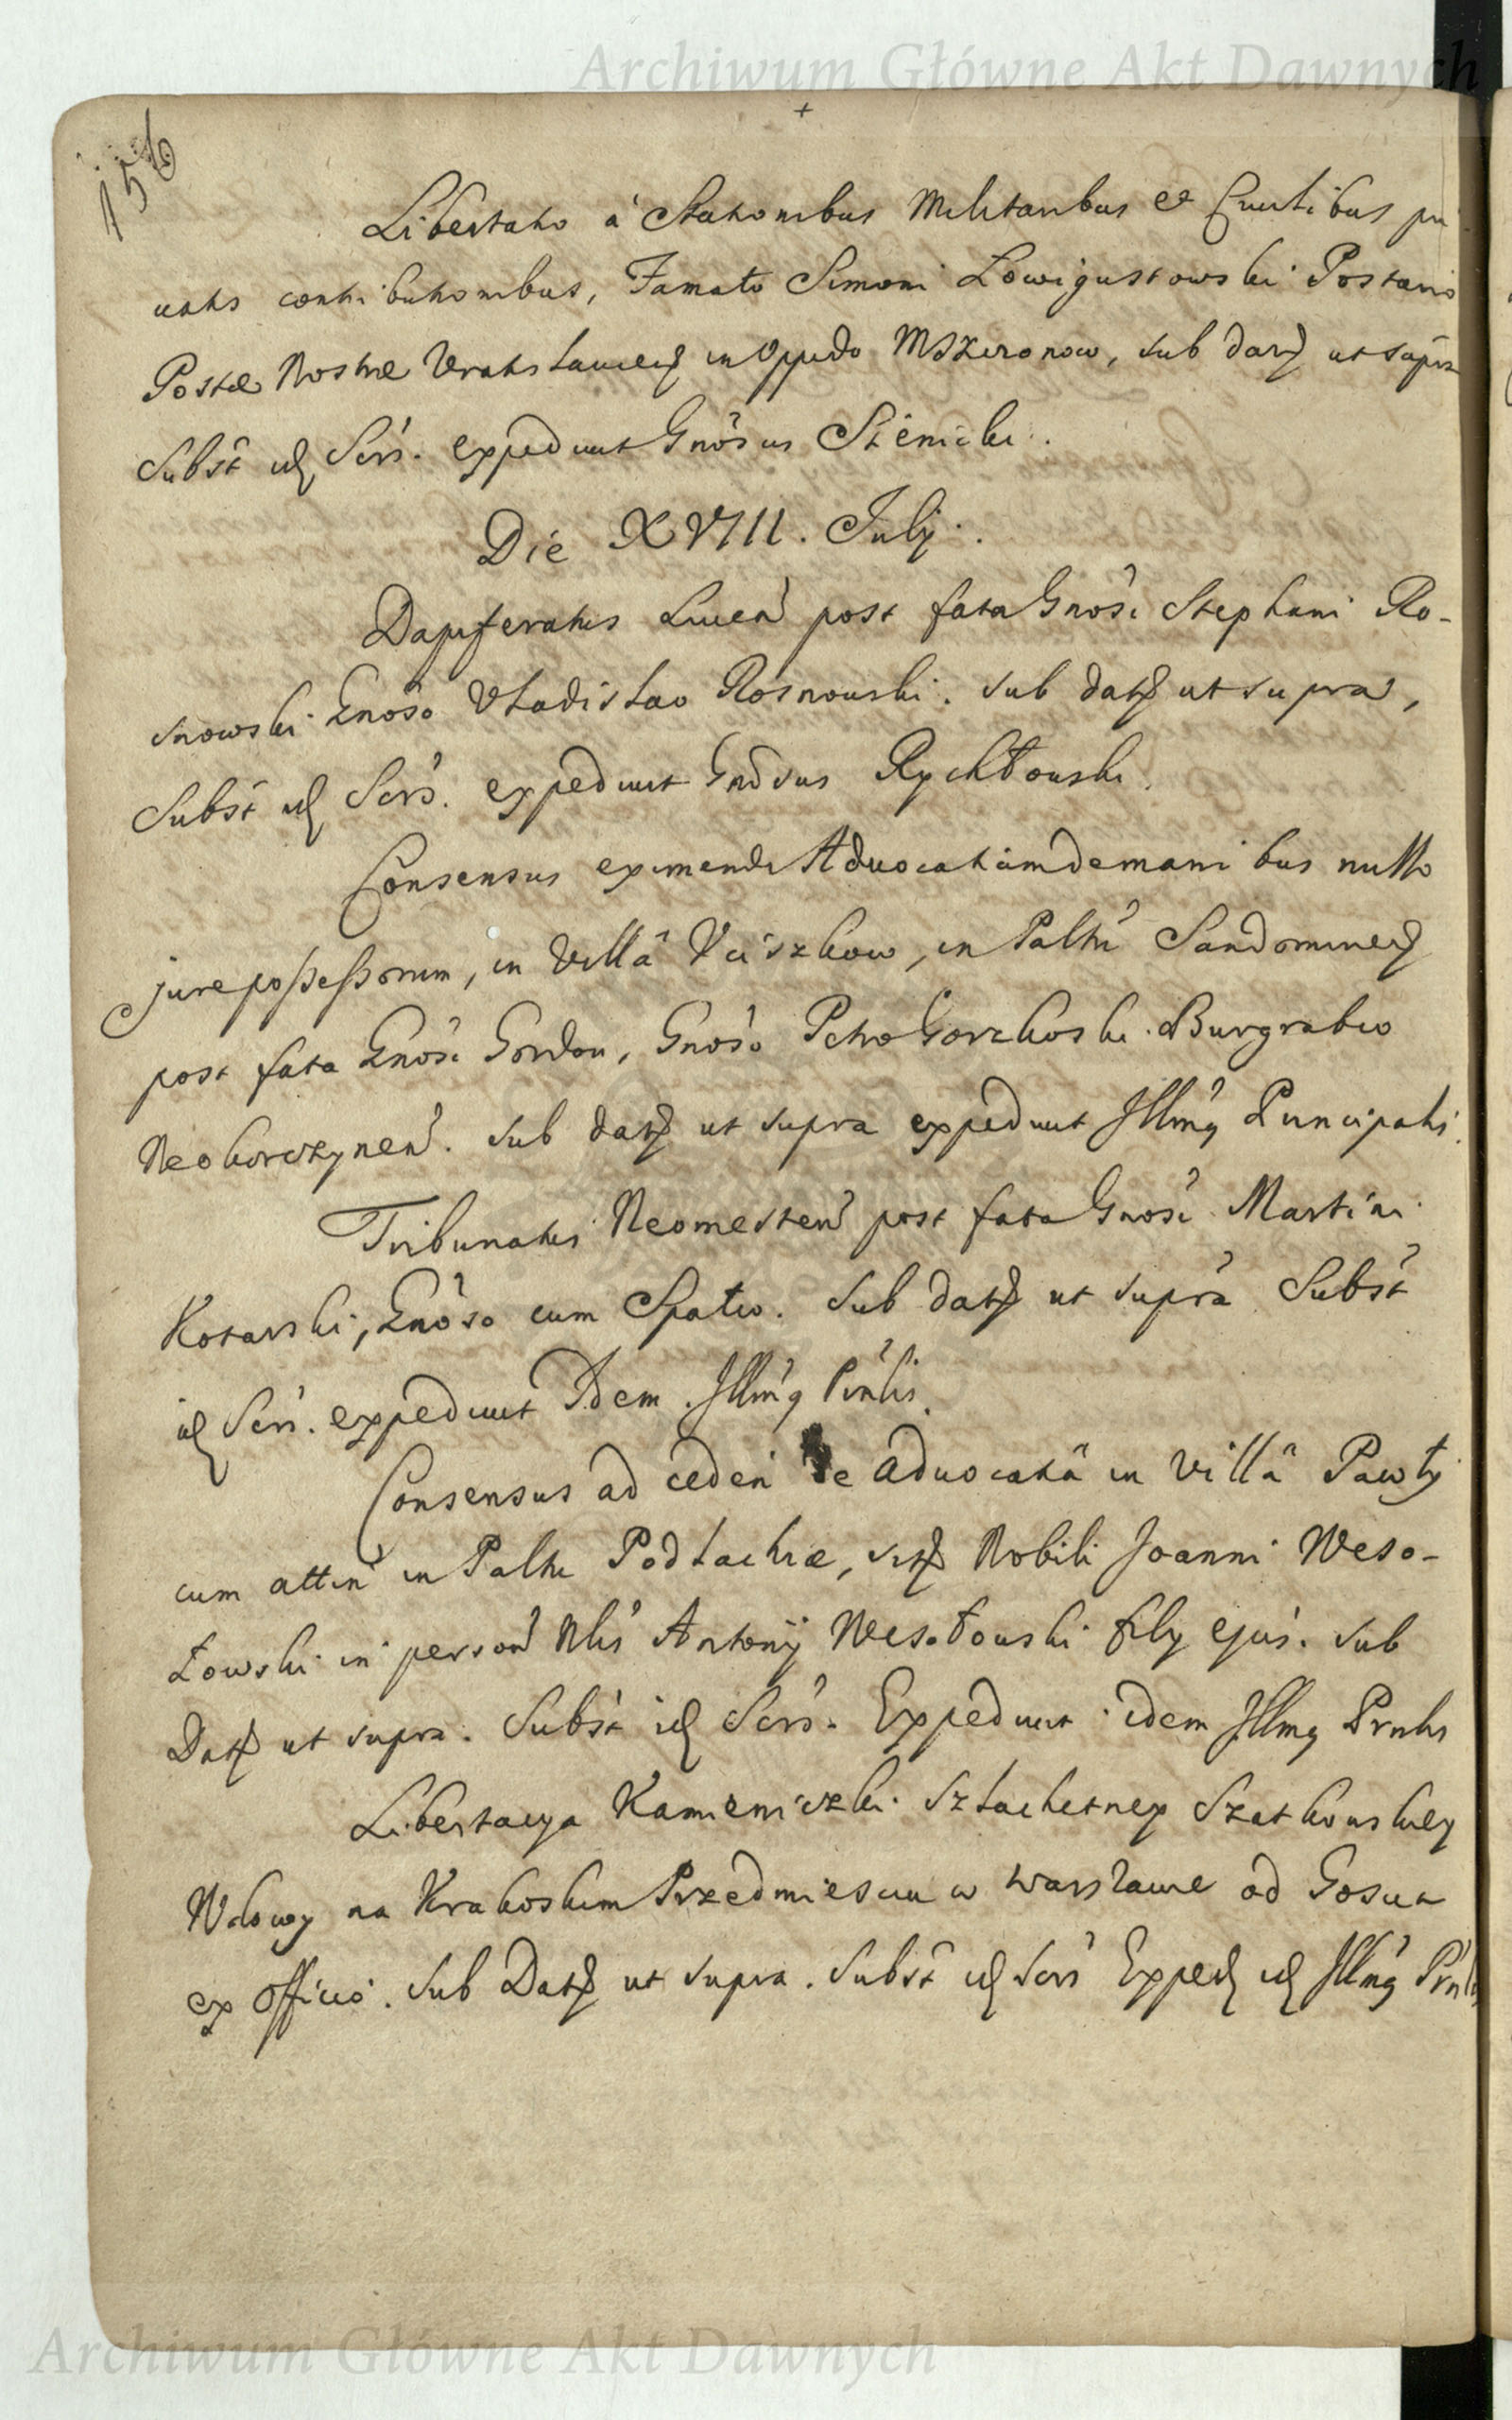 Archiwum Główne Akt Dawnych
156
Libertatio à Stationibus Militaribus et Civilibus pri
uatis contributionibus, Famato Simoni Lowigustowski Postario
Postæ Nostræ Vratislauien in Oppido Mszczonow, sub dat ut supra
Subst id Scrs. expediuit Gnõsus Sienicki.
Die XVIII. Julij.
Dapiferatus Liuen post fata Gnosi Stephani Ro-
snowski Gnoso Vladislao Rosnowski. sub dat ut supra,
Subst id Scrs. expediuit Gnosus Rychłouski.
Consensus eximendi Aduocatiam de manibus nullo
jure possessorum, in Villâ in Paltu Sandomirien
post fata Gnosi Gordon, Gnoso Petro Gorzkoski Burgrabio
Neokorczynen. sub dat ut supra expediuit Illmg Principalis.
Tribunatus Neomesten post fata Gnosi Martini
Kotarski, Gnoso cum Spatio. sub dat ut supra Subst
id Scrs. expediuit Idem Illmg Pnlis.
Consensus ad ceden de aduocatiâ in Villâ Pawły
cum attin in Paltu Podlachiæ, sit Nobili Joanni Weso-
łowski in person Nlis Antonij Wesołouski filij ejus. sub
Dat ut supra. Subst id Scrs. Expediuit idem Illmg Prnlis
Libertacya Kamieniczki Szlachetney Szatkouskiey
Wdowy na Krakoskim Przedmiesciu w Warszawie od Gosci
ex officio. sub Dat ut supra. Subst id Scrs Exped id Illmg Prnlis
Archiwum Główne Akt Dawnych